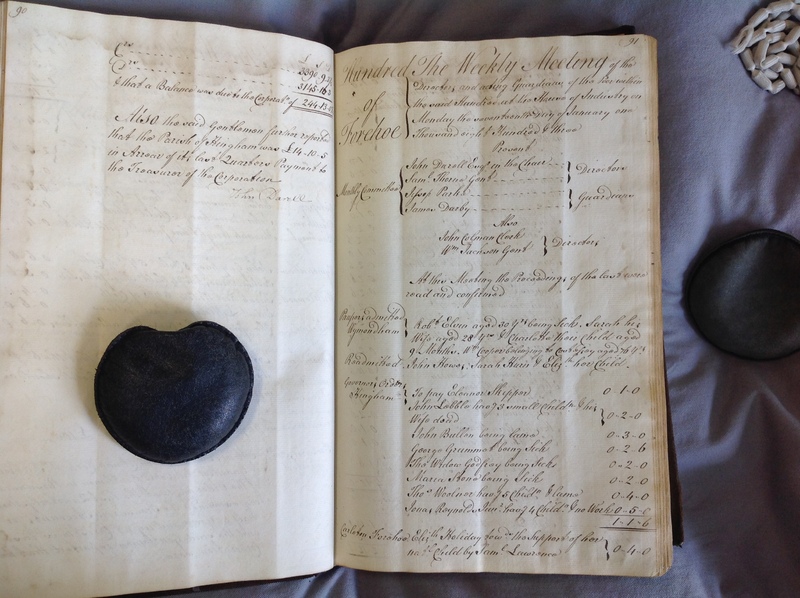 90
£
3390 9
3145-16
& that a Balance was due to the Corporatn. of 244-13
Also the said Gentlemen further report
that the Parish of Hingham was £14-10-5
in Arrear of its last Quarters Payment to
the Treasurer of the Corporation
91
Hundred of Forehoe
The Weekly Meeting of the
Directors and acting Guardians of the Poor within
the said Hundred at the House of Industry on
Monday the seventeenth day of January one
Thousand eight Hundred & three
Present
Monthly Committee
John Darell Esqr. in the Chair
Saml. Thorne Gent. Directors
Jessop Parke
James Darby Guardians
Also
John Colman Clerk
Wm. Jackson Gent. Directors
At this Meeting the Proceedings of the last were
read and confirmed
Paupers admitted
Wymondham
Robt. Elvin aged 30 Yrs. being Sick, Sarah his
Wife aged 28 Yrs. & Charlotte their Child aged
9 Months. Wm. Cooper belonging to Costessey aged 76 Yrs.
Readmitted John Howes, Sarah & Elizth. her Child.
Governors Orders
Hingham
To pay Eleanor Skipper 0-1-0
John havg. 3 small Childn. & his
Wife dead 0-2-0
John Bullen being lame 0-3-0
George Grummet being Sick 0-2-6
The Widow Godfray being Sick 0-2-0
Maria Stone being Sick 0-2-0
Thos. havg. 5 Childn. & lame 0-4-0
Jonas Reynolds Junr. havg. 4 Childn. & no Work 0-5-0
1-1-6
Carleton Forehoe Elizth. Holiday tow. the Support of her
Child by Saml. Lawrance 0-4-0